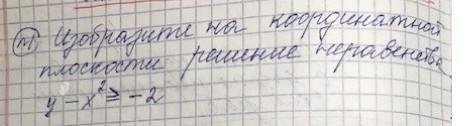 (m) Изобразите на координатной
плоскости решение неравенства
y - x² ≥ -2